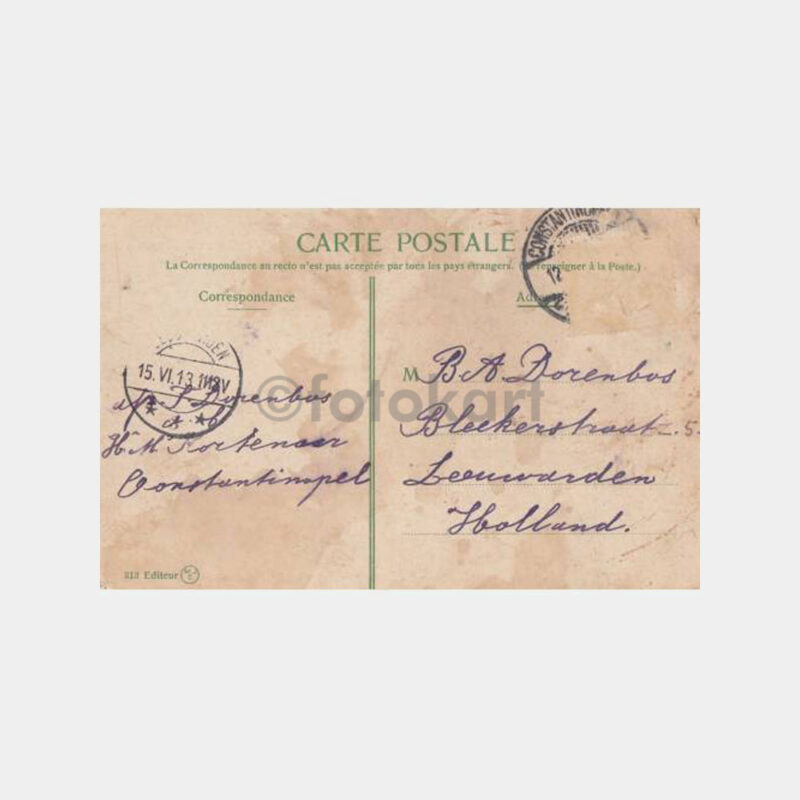 CARTE POSTALE
La Correspondance au recto n'est pas acceptée par tous les pays étrangers. (Se renseigner à la Poste.)
Correspondance
CONSTANTINO
15.VI.13
M B. A. Dorenbos
Bleekerstraat. 5.
Leeuwarden
Holland.
afz. J Dorenbos
a. b
H. M Kortenaer
Constantinopel
©fotokart
313 Editeur